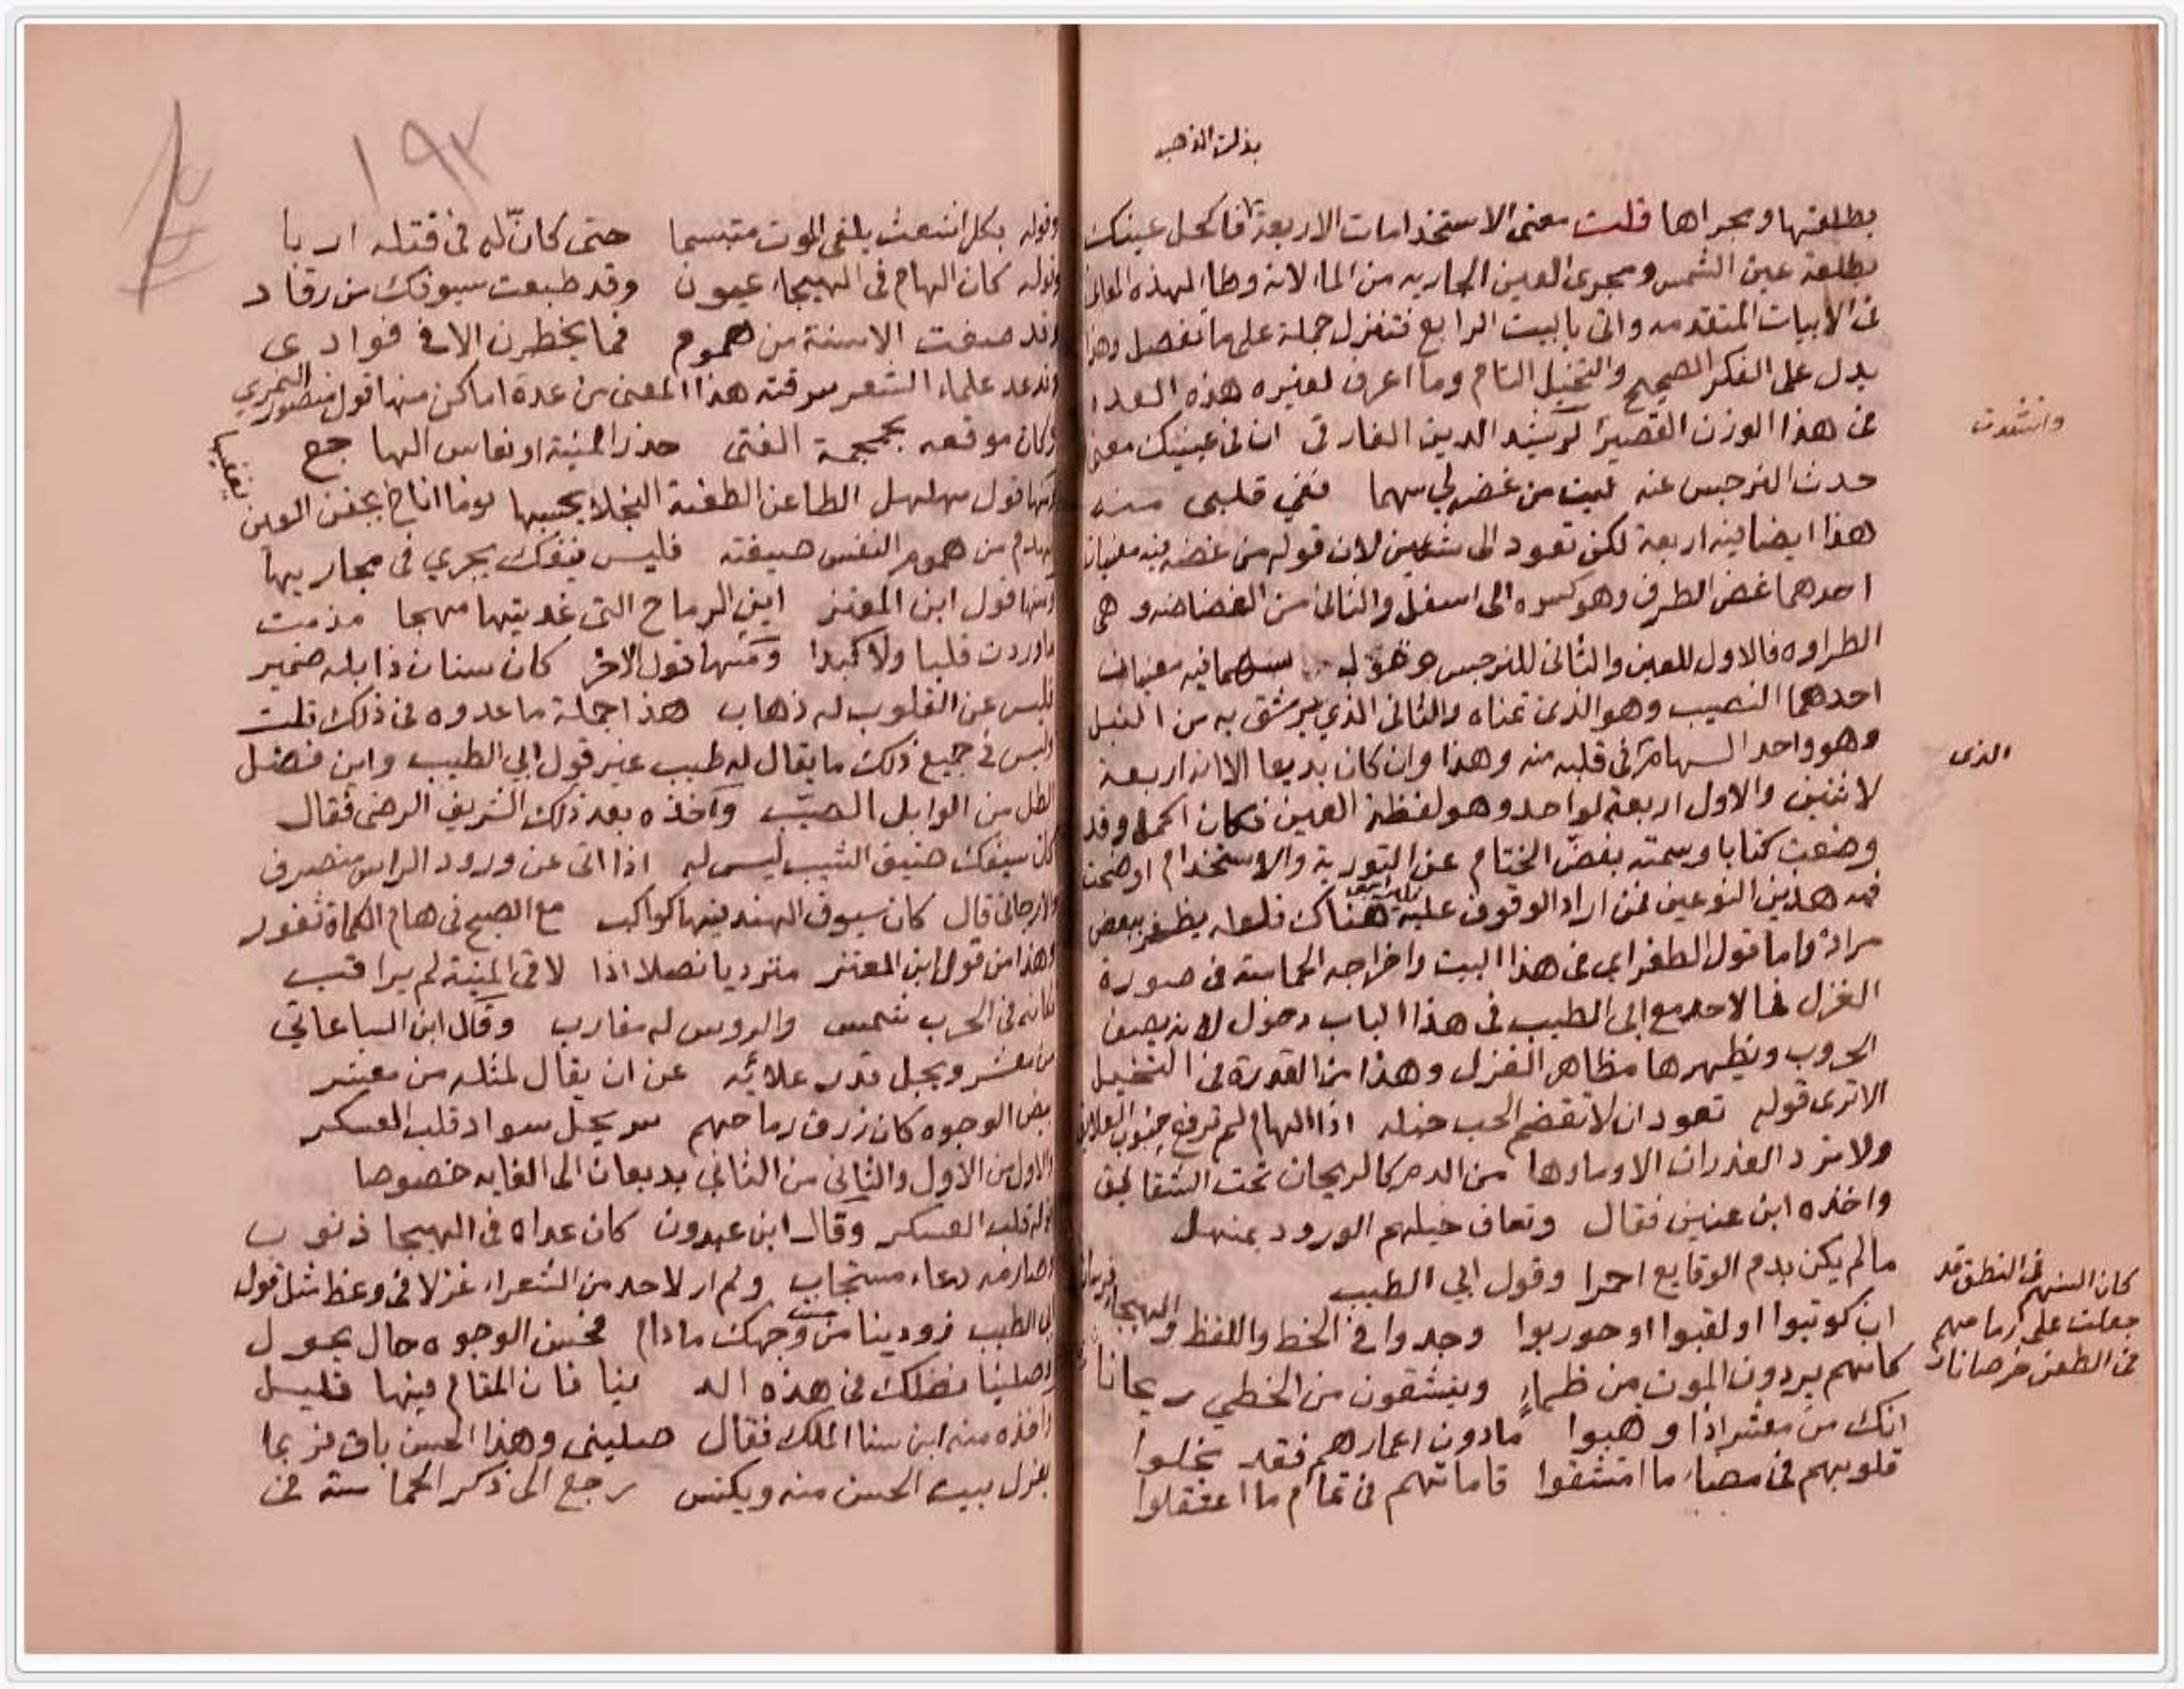 بذلت الذهب
بطلعتها ومجراها قلت معنى الاستخدامات الاربعة فاكحل عينك
بطلعة عين الشمس ومجرى العين الجارية من الماء لانه وطا لهذه
فى الابيات المتقدمه واتى بالبيت الرابع فتنزل جملة على ما تفصل وهذا
يدل على الفكر الصحيح والتخيل التام وما اعرف لغيره هذه
فى هذا الوزن القصير لرشيد الدين الفارقى ان فى عينيك معنى
وانشدت
حدث النرجس عنه ليت من غضه لى سهما ففى قلبى منه
هذا ايضا فيه اربعة لكن تعود الى شيئين لان قوله من غضه فيه معنيان
احدهما غض الطرف وهو كسره الى اسفل والثانى من الغضاضه وهى
الطراوه فالاول للعين والثانى للنرجس وقوله سهما فيه معنيان
احدهما النصيب وهو الذى تمناه والثانى الذي يرشق به من النبل
وهو واحد السهام فى قلبه منه وهذا وان كان بديعا الا انه اربعة
الذى
لاثنين والاول اربعة لواحد وهو لفظة العين فكان اكمل وقد
وضعت كتابا وسمته بفض الختام عن التورية والاستخدام اوضحت
فيه هذين النوعين فمن اراد الوقوف عليه هناك فلعله يظفر ببعض
مراده واما قول الطغراى فى هذا البيت واخراجه الحماسة فى صورة
الغزل فما لاحد مع ابى الطيب فى هذا الباب دخول لانه يصف
الحروب ويظهرها مظاهر الغزل وهذا من القدرة فى التخيل
الا ترى قوله تعود ان لا تقضم الحب خيله اذا الهام لم ترفع جنوب العلايق
ولا ترد الغدران الا وماؤها من الدم كالريحان تحت الشقايق
واخذه ابن عنين فقال وتعاف خيلهم الورود بمنهل
ما لم يكن بدم الوقايع احمرا وقول ابي الطيب
ان كوتبوا او لقبوا او حوربوا وجدوا فى الخط واللفظ والهيجاء فرسانا
كان السنهم فى النطق قد
جعلت على رماحهم
فى الطعن خرصانا
كانهم يردون الموت من ظماء وينشقون من الخطي ريحانا
انك من معشر اذا وهبوا ما دون اعمارهم فقد بخلوا
قلوبهم فى مضاء ما امتشقوا قاماتهم فى تمام ما اعتقلوا
١٩٢
وقوله بكل اشعث يلقى الموت متبسما حتى كانّ له فى قتله اربا
وقوله كان الهام فى الهيجاء عيون وقد طبعت سيوفك من رقاد
وقد صغت الاسنة من هموم فما يخطرن الا فى فوادى
وقد عد علماء الشعر سرقته هذا المعنى من عدة اماكن منها قول منصور النمري
وكان موقعه بجمجمة الفتى حذر المنية او نعاس الهاجع
ومنها قول مهلهل الطاعن الطعنة النجلا يحسبها نوما اناخ بجفن العين يغفيها
بلهذم من هموم النفس صيغته فليس ينفك يجري فى مجاريها
ومنها قول ابن المعتز اين الرماح التى غذيتها مهجا مذ مت
ما وردت قلبا ولا كبدا ومنها قول الاخر كان سنان ذابله ضمير
فليس عن القلوب له ذهاب هذا جملة ما عدوه فى ذلك قلت
وليس فى جميع ذلك ما يقال له طيب غير قول ابي الطيب واين فضل
الطل من الوابل الصيب واخذه بعد ذلك الشريف الرضى فقال
كان سيفك ضيف الشيب ليس له اذا اتى عن ورود الراس منصرف
والارجانى قال كان سيوف الهند فيها كواكب مع الصبح فى هام الكماة تغور
وهذا من قول ابن المعتز مترديا نصلا اذا لاقى المنية لم يراقب
فكانه فى الحرب شمس والروس له مغارب وقال ابن الساعاتي
من معشر ويجل قدر علائه عن ان يقال لمثله من معشر
بيض الوجوه كان زرق رماحهم سر يحل سواد قلب العسكر
والاول من الاول والثانى من الثاني بديعان الى الغايه خصوصا
قوله قلب العسكر وقال ابن عبدون كان عداه فى الهيجا ذنوب
وصارمه دعاء مستجاب ولم ار لاحد من الشعراء غزلا فى وعظ مثل قول
ابى الطيب زودينا من حسن وجهك ما دام فحسن الوجوه حال يحول
وصلينا نصلك فى هذه الدنيا فان المقام فيها قليل
واخذه منه ابن سنا الملك فقال صلينى وهذا الحسن باق فربما
يعزل بيت الحسن منه ويكنس رجع الى ذكر الحماسة فى